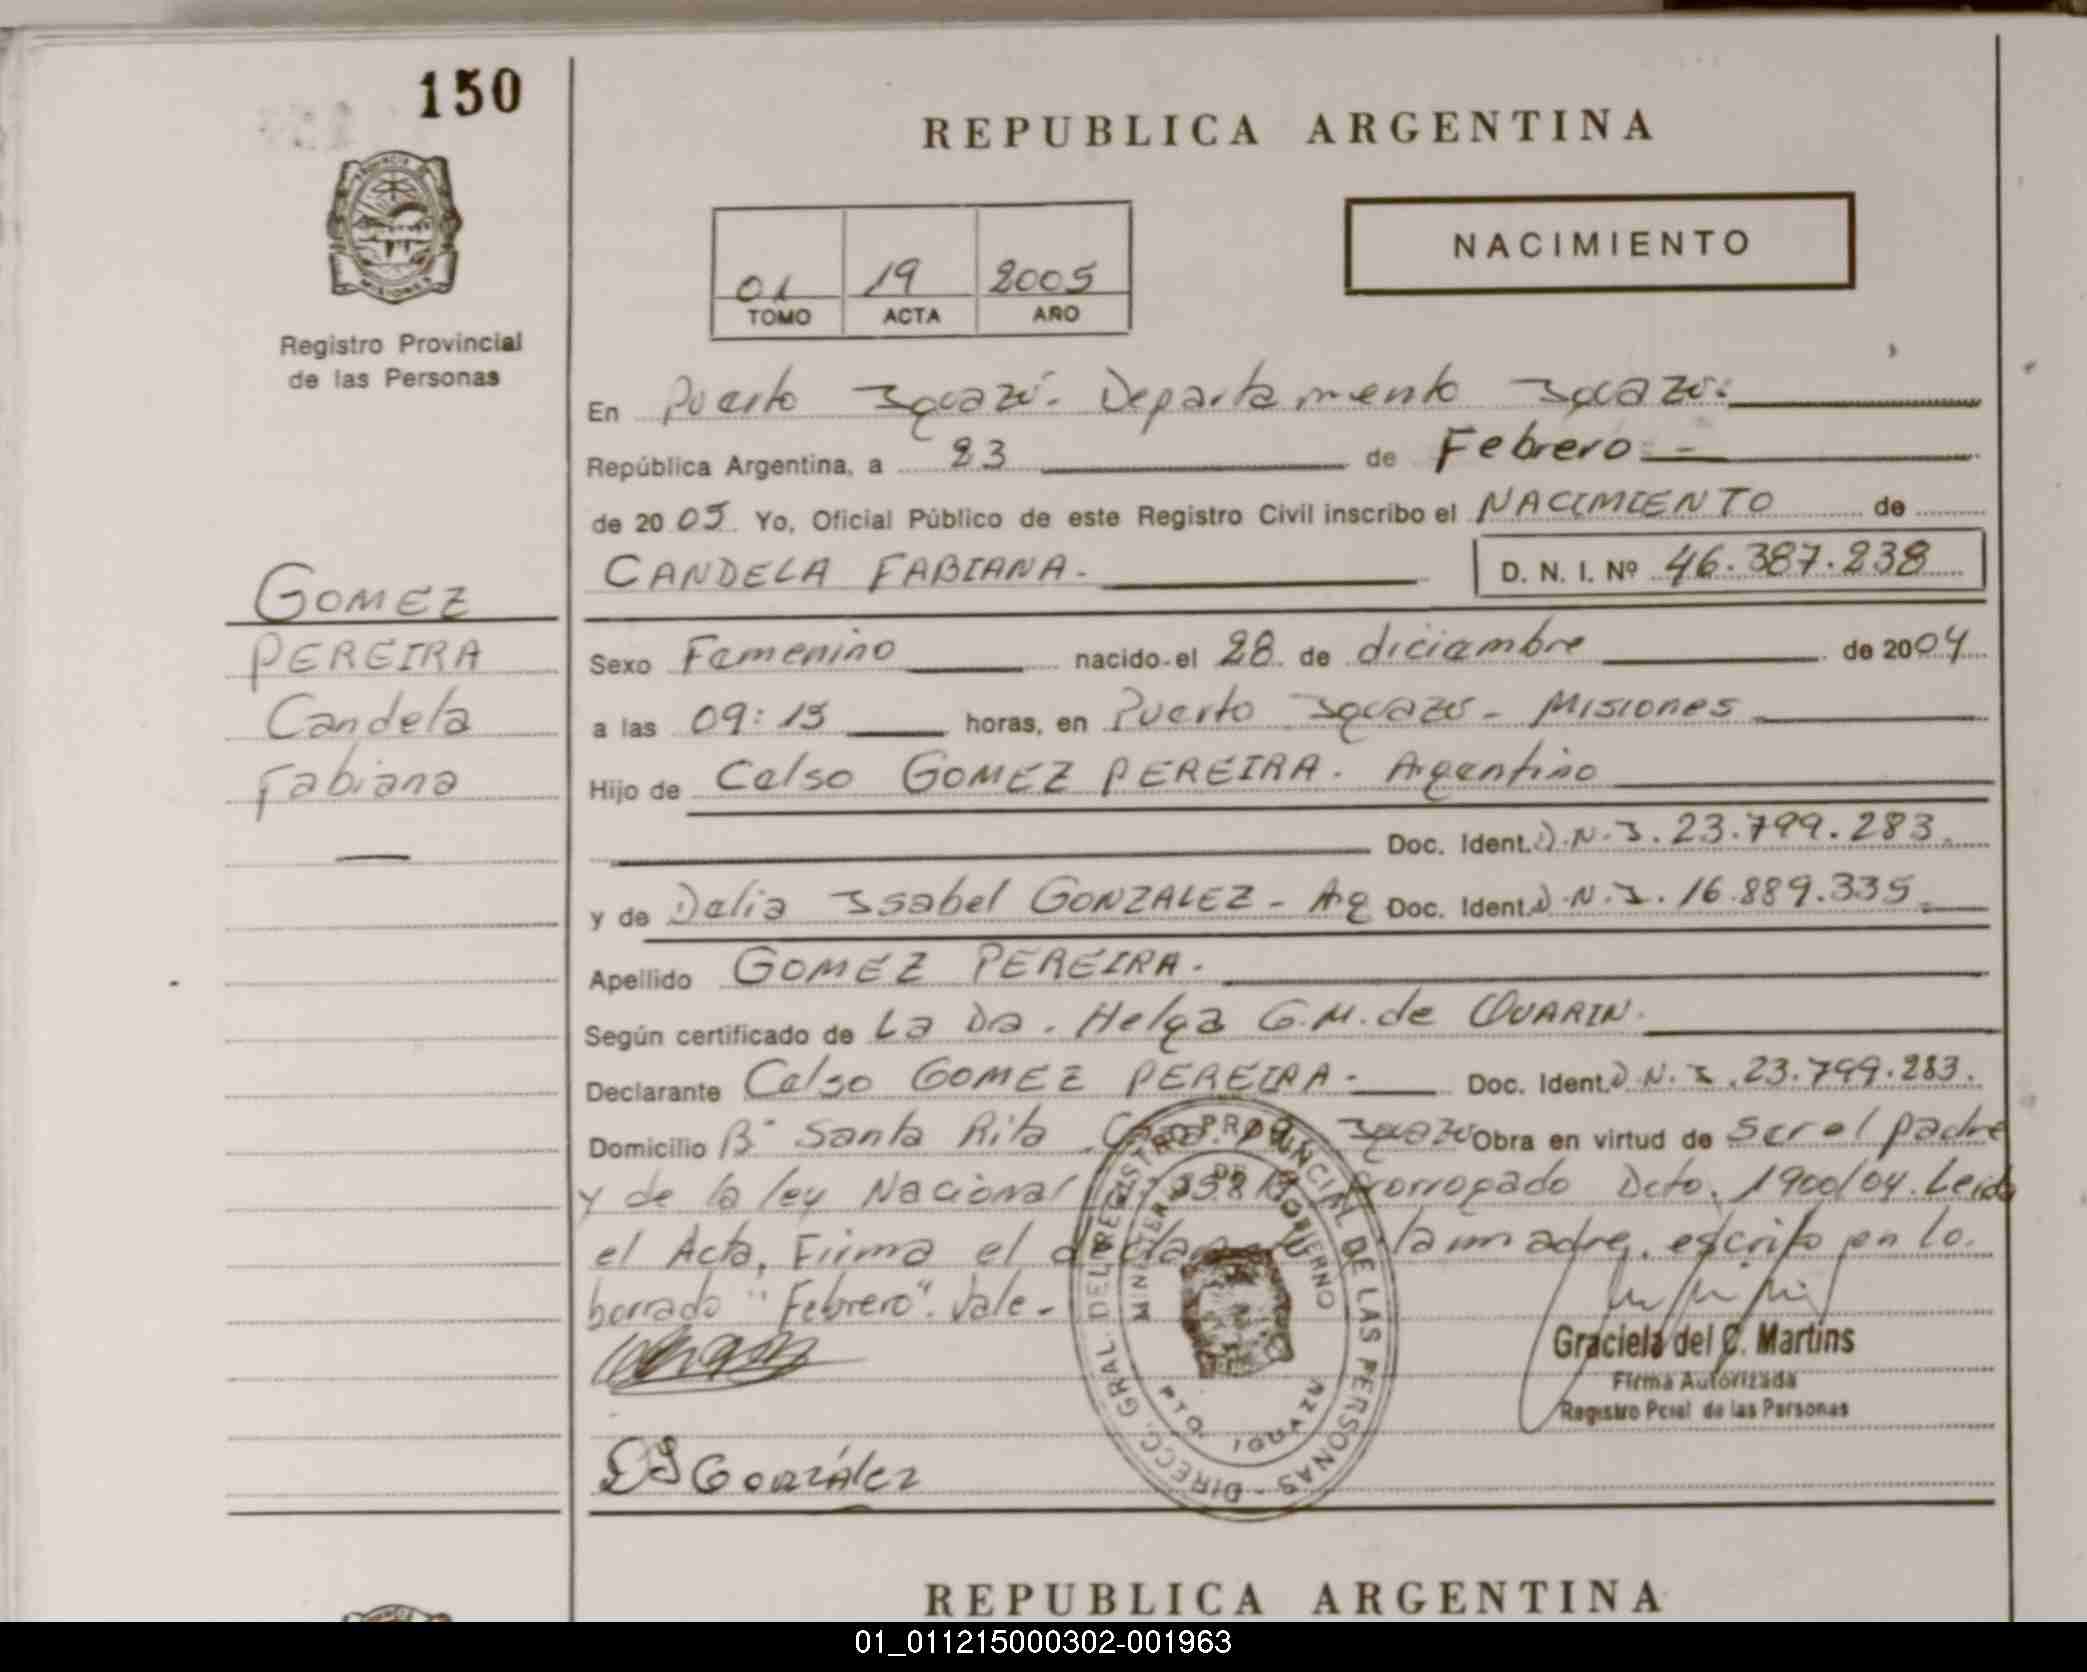 150
REPUBLICA ARGENTINA
NACIMIENTO
01 19 2005
TOMO ACTA AÑO
Registro Provincial
de las Personas
En Puerto Iguazú. Departamento Iguazú.
República Argentina, a 23 de Febrero
de 2005 Yo, Oficial Público de este Registro Civil inscribo el NACIMIENTO de
CANDELA FABIANA.
D. N. I. Nº 46.387.238
GOMEZ
PEREIRA
Candela
Fabiana
Sexo Femenino nacido el 28 de diciembre de 2004
a las 09:15 horas, en Puerto Iguazú - Misiones
Hijo de Celso GOMEZ PEREIRA. Argentino
Doc. Ident. D.N.I. 23.799.283
y de Delia Isabel GONZALEZ - Arg Doc. Ident. D.N.I. 16.889.335
Apellido GOMEZ PEREIRA.
Según certificado de La Dra. Helga G.M. de
Declarante Celso GOMEZ PEREIRA - Doc. Ident. D.N.I. 23.799.283.
Domicilio Bº Santa Rita Iguazú Obra en virtud de ser el padre
y de la ley Nacional prorrogado Dcto. 1900/04. Leida
el Acta, Firma el la madre, escrito en lo
borrado "Febrero". Vale -
DIRECC. GRAL. DEL REGISTRO PROVINCIAL DE LAS PERSONAS
MINISTERIO DE GOBIERNO
PTO. IGUAZU
Graciela del C. Martins
Firma Autorizada
Registro Pcial de las Personas
González
REPUBLICA ARGENTINA
01_011215000302-001963